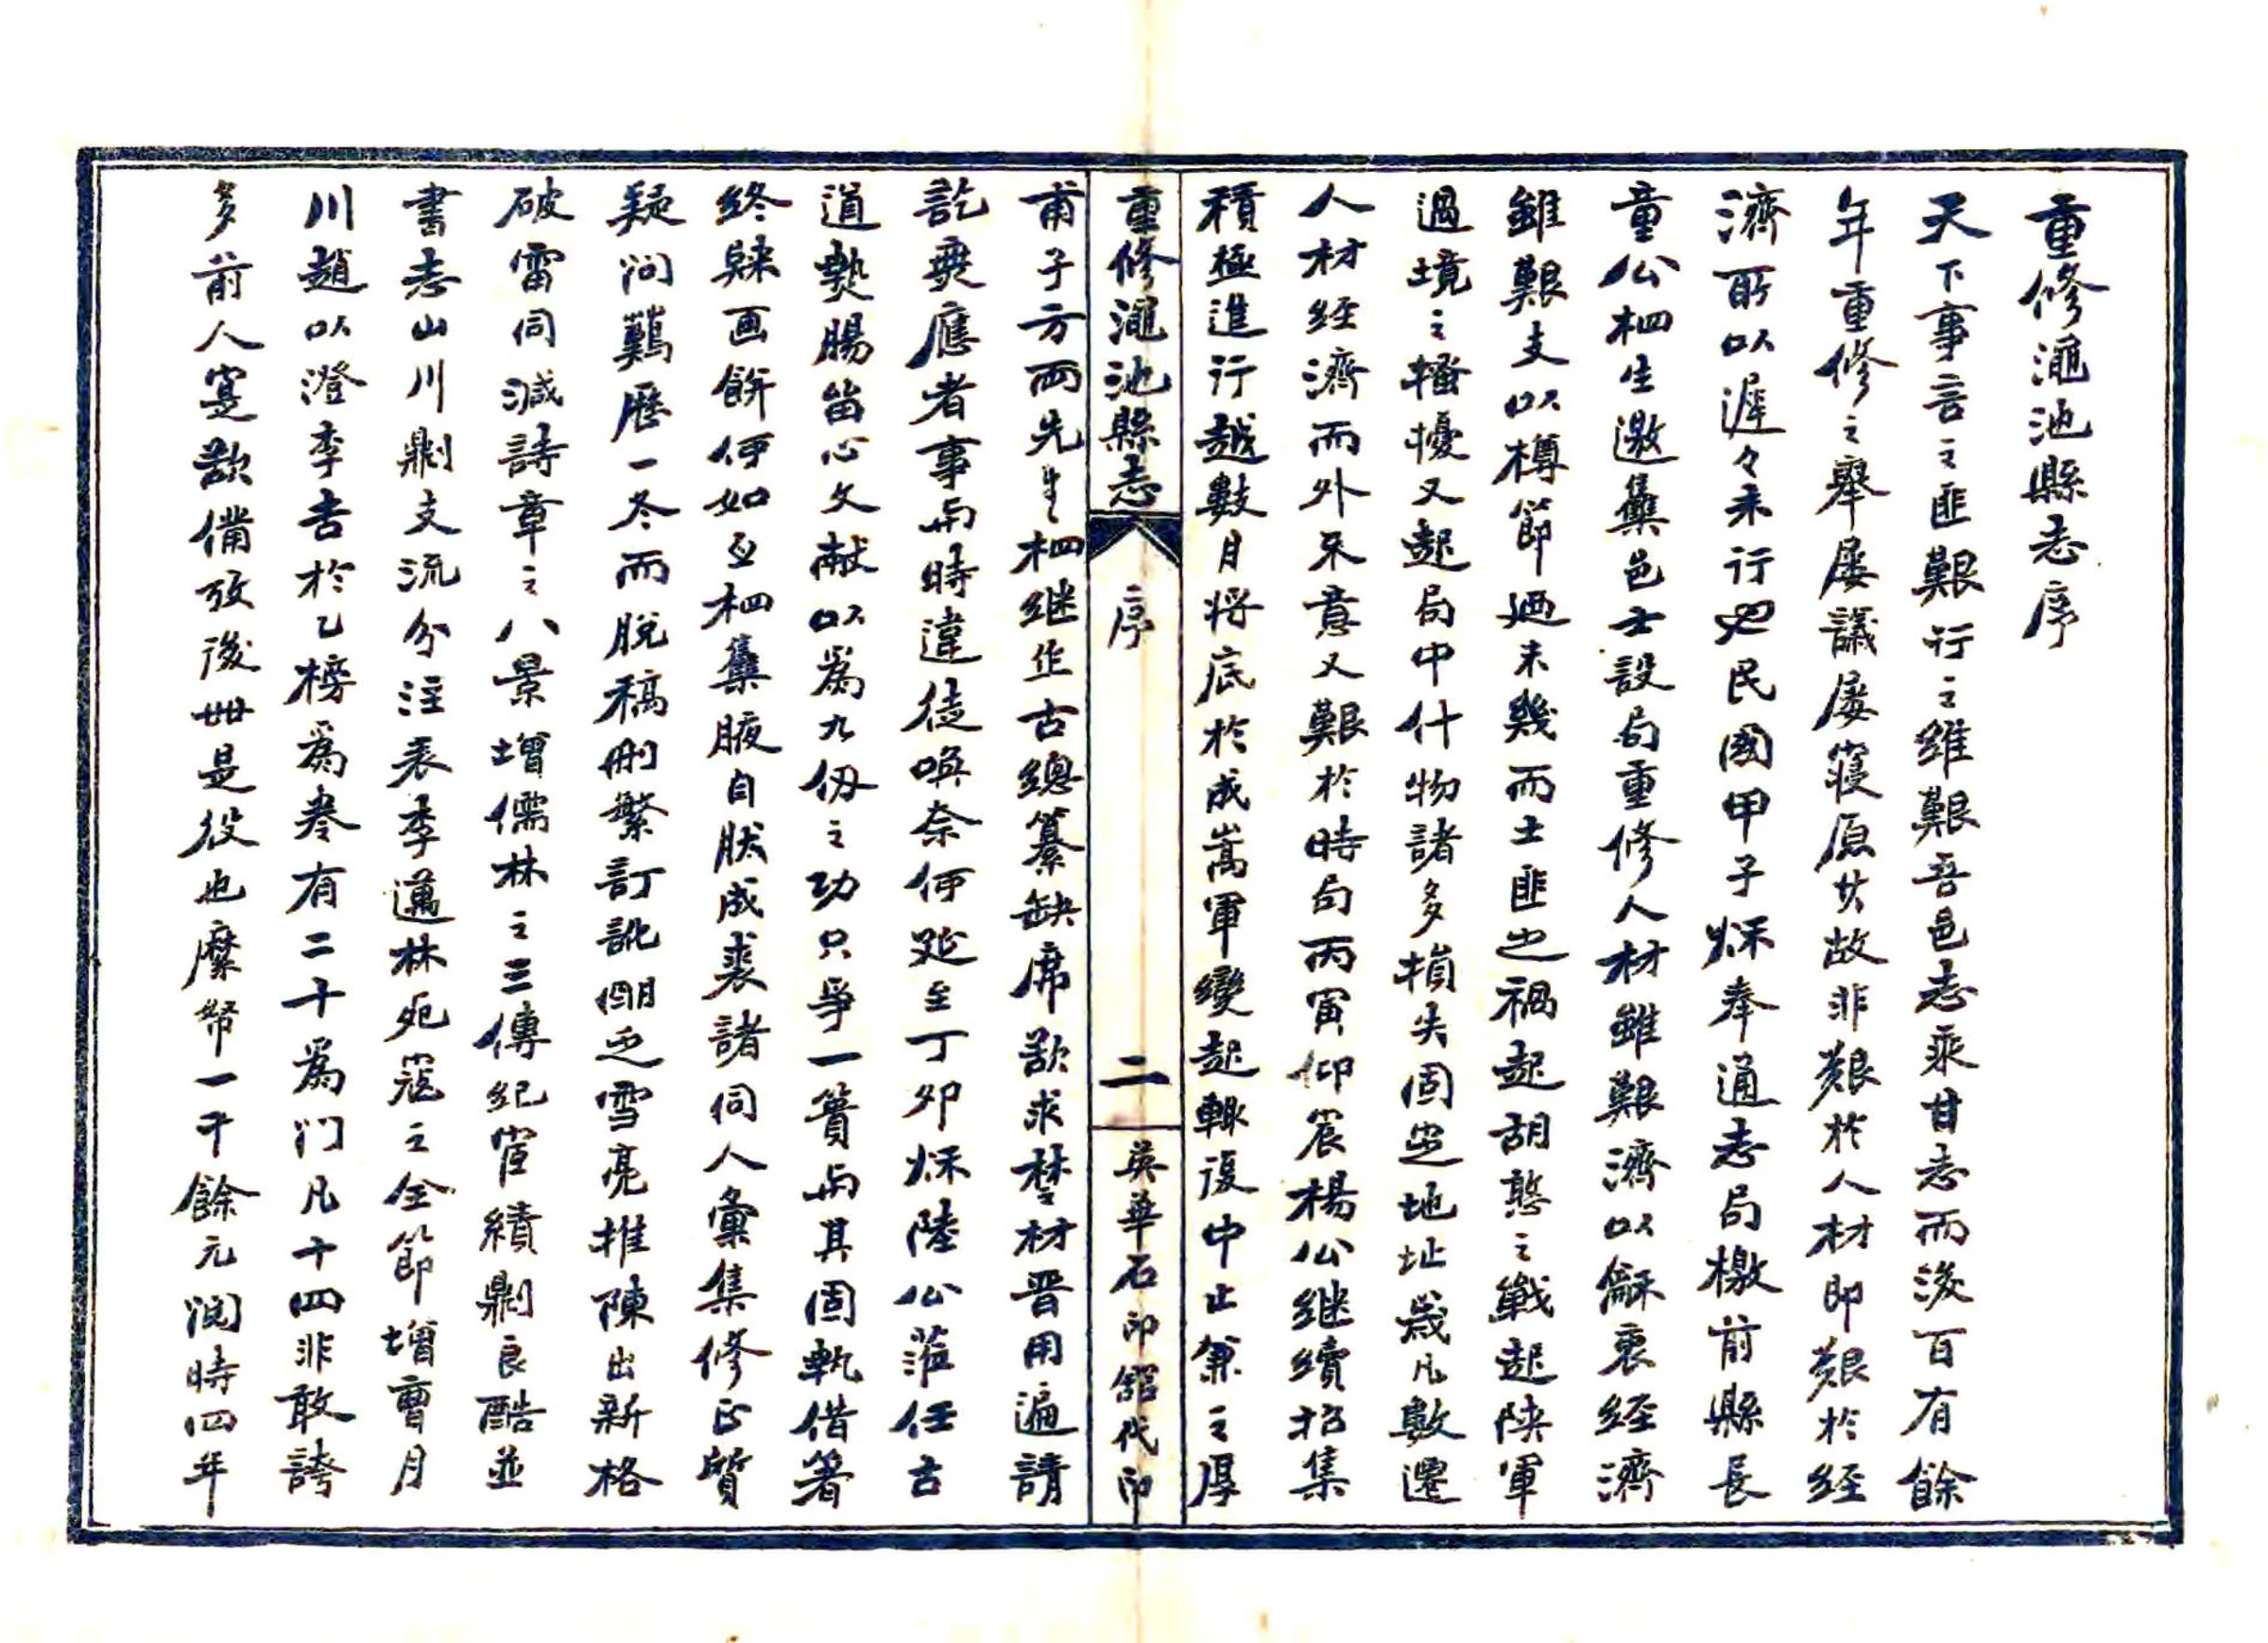 重修澠池縣志序
天下事言之匪艱行之維艱吾邑志乘甘志而後百有餘
年重修之舉屢議屢寢原其故非艱於人材即艱於經
濟所以遲々未行也民國甲子秌奉通志局檄前縣長
童公栖生邀集邑士設局重修人材雖艱濟以龢衷经濟
雖艱支以樽節廼未幾而土匪之禍起胡憨之戰起陕軍
過境之搔擾又起局中什物諸多損失固㝎地址歲凡數遷
人材经濟而外不意又艱於時局丙寅仰宸楊公継續招集
積極進行越數月将底於成嵩軍變起輙復中止兼之厚
重修澠池縣志
序
二
英華石印舘代印
甫子方兩先生栖継作古總纂缺席歆求楚材晋用遍請
訖無應者事与時違徒喚奈何延至丁夘秌陸公蒞任古
道熱腸留心文献以為九仭之功只爭一簣与其固執借箸
終歸画餅何如互栖集腋自肰成裘諸同人彙集修正質
疑问難歷一冬而脫稿刪繁訂訛朙乏雪亮推陳出新格
破雷同减詩章之八景增儒林之三傳紀宦績劘良酷並
書志山川劘支流分注表李邁林死寇之全節增曹月
川趙以澄李吉於乙榜為卷有二十為门凡十四非敢誇
多前人寔歆備攷後世是役也縻幣一千餘元润時四年